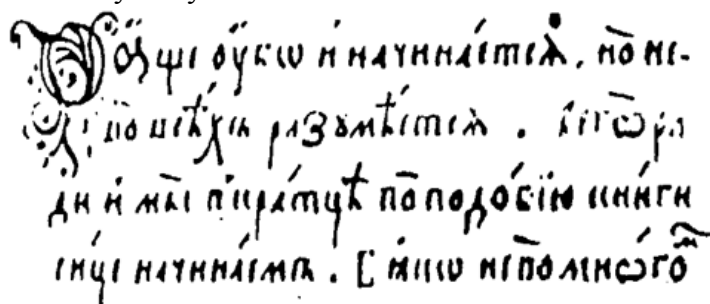 Аще оубѡ и начинае́тсѧ, но не-
по всѣ́хъ разꙋмѣ́етсѧ . сегѡ ра
ди и мы в'кра́тцѣ по подо́бїю кни́ги
си́це начина́емъ . [ ꙗ́кѡ не по мнѡ́гом